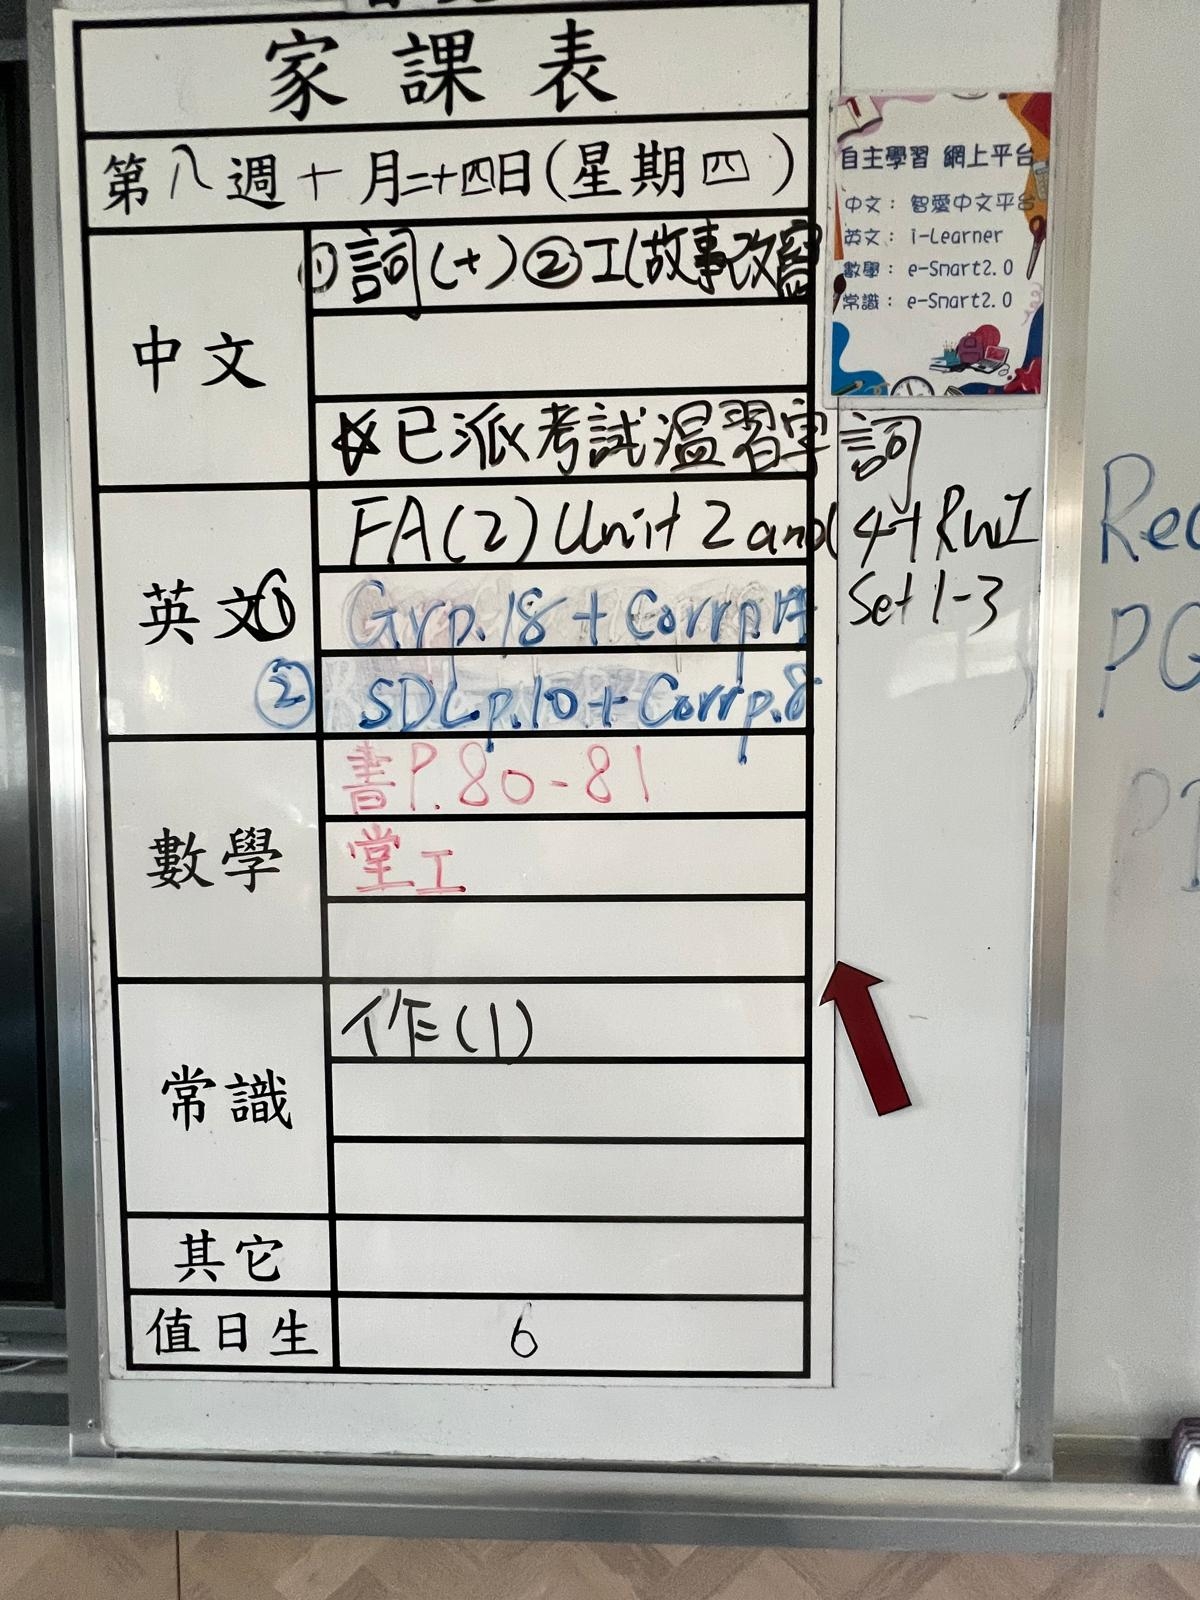 家課表
第八週十月二十四日(星期四)
中文
①詞(十)②工(故事改寫
☆已派考試溫習單 詞
英文
FA(2) Unit 2 and 4+RWI
Set 1-3
① Grp.18 + Corrp.17
② SDLp.10 + Corrp.8
數學
書P.80-81
堂工
常識
作(1)
其它
值日生
6
自主學習 網上平台
中文： 智愛中文平台
英文： i-Learner
數學： e-Smart2.0
常識： e-Smart2.0